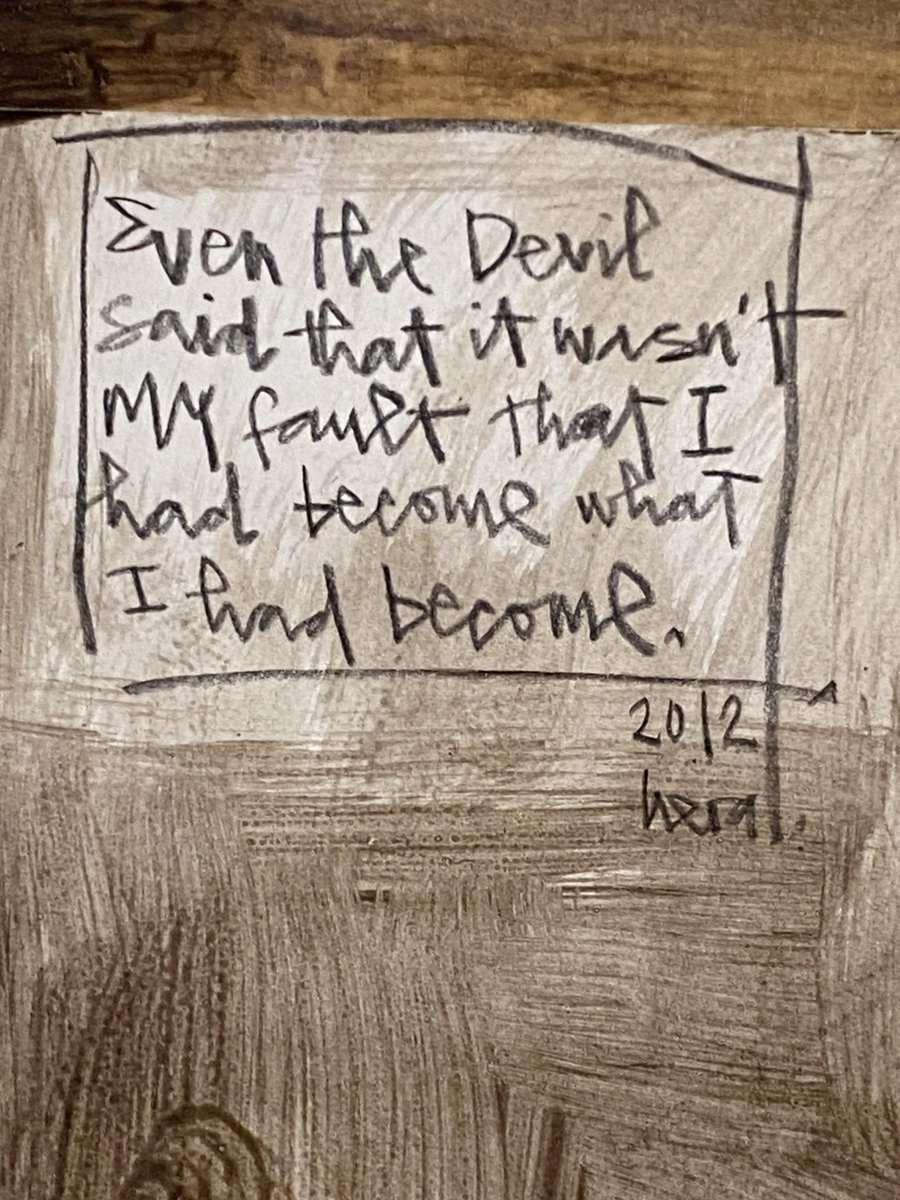 Even the Devil
said that it wasn't
My fault that I
had become what
I had become.
2012
hera.